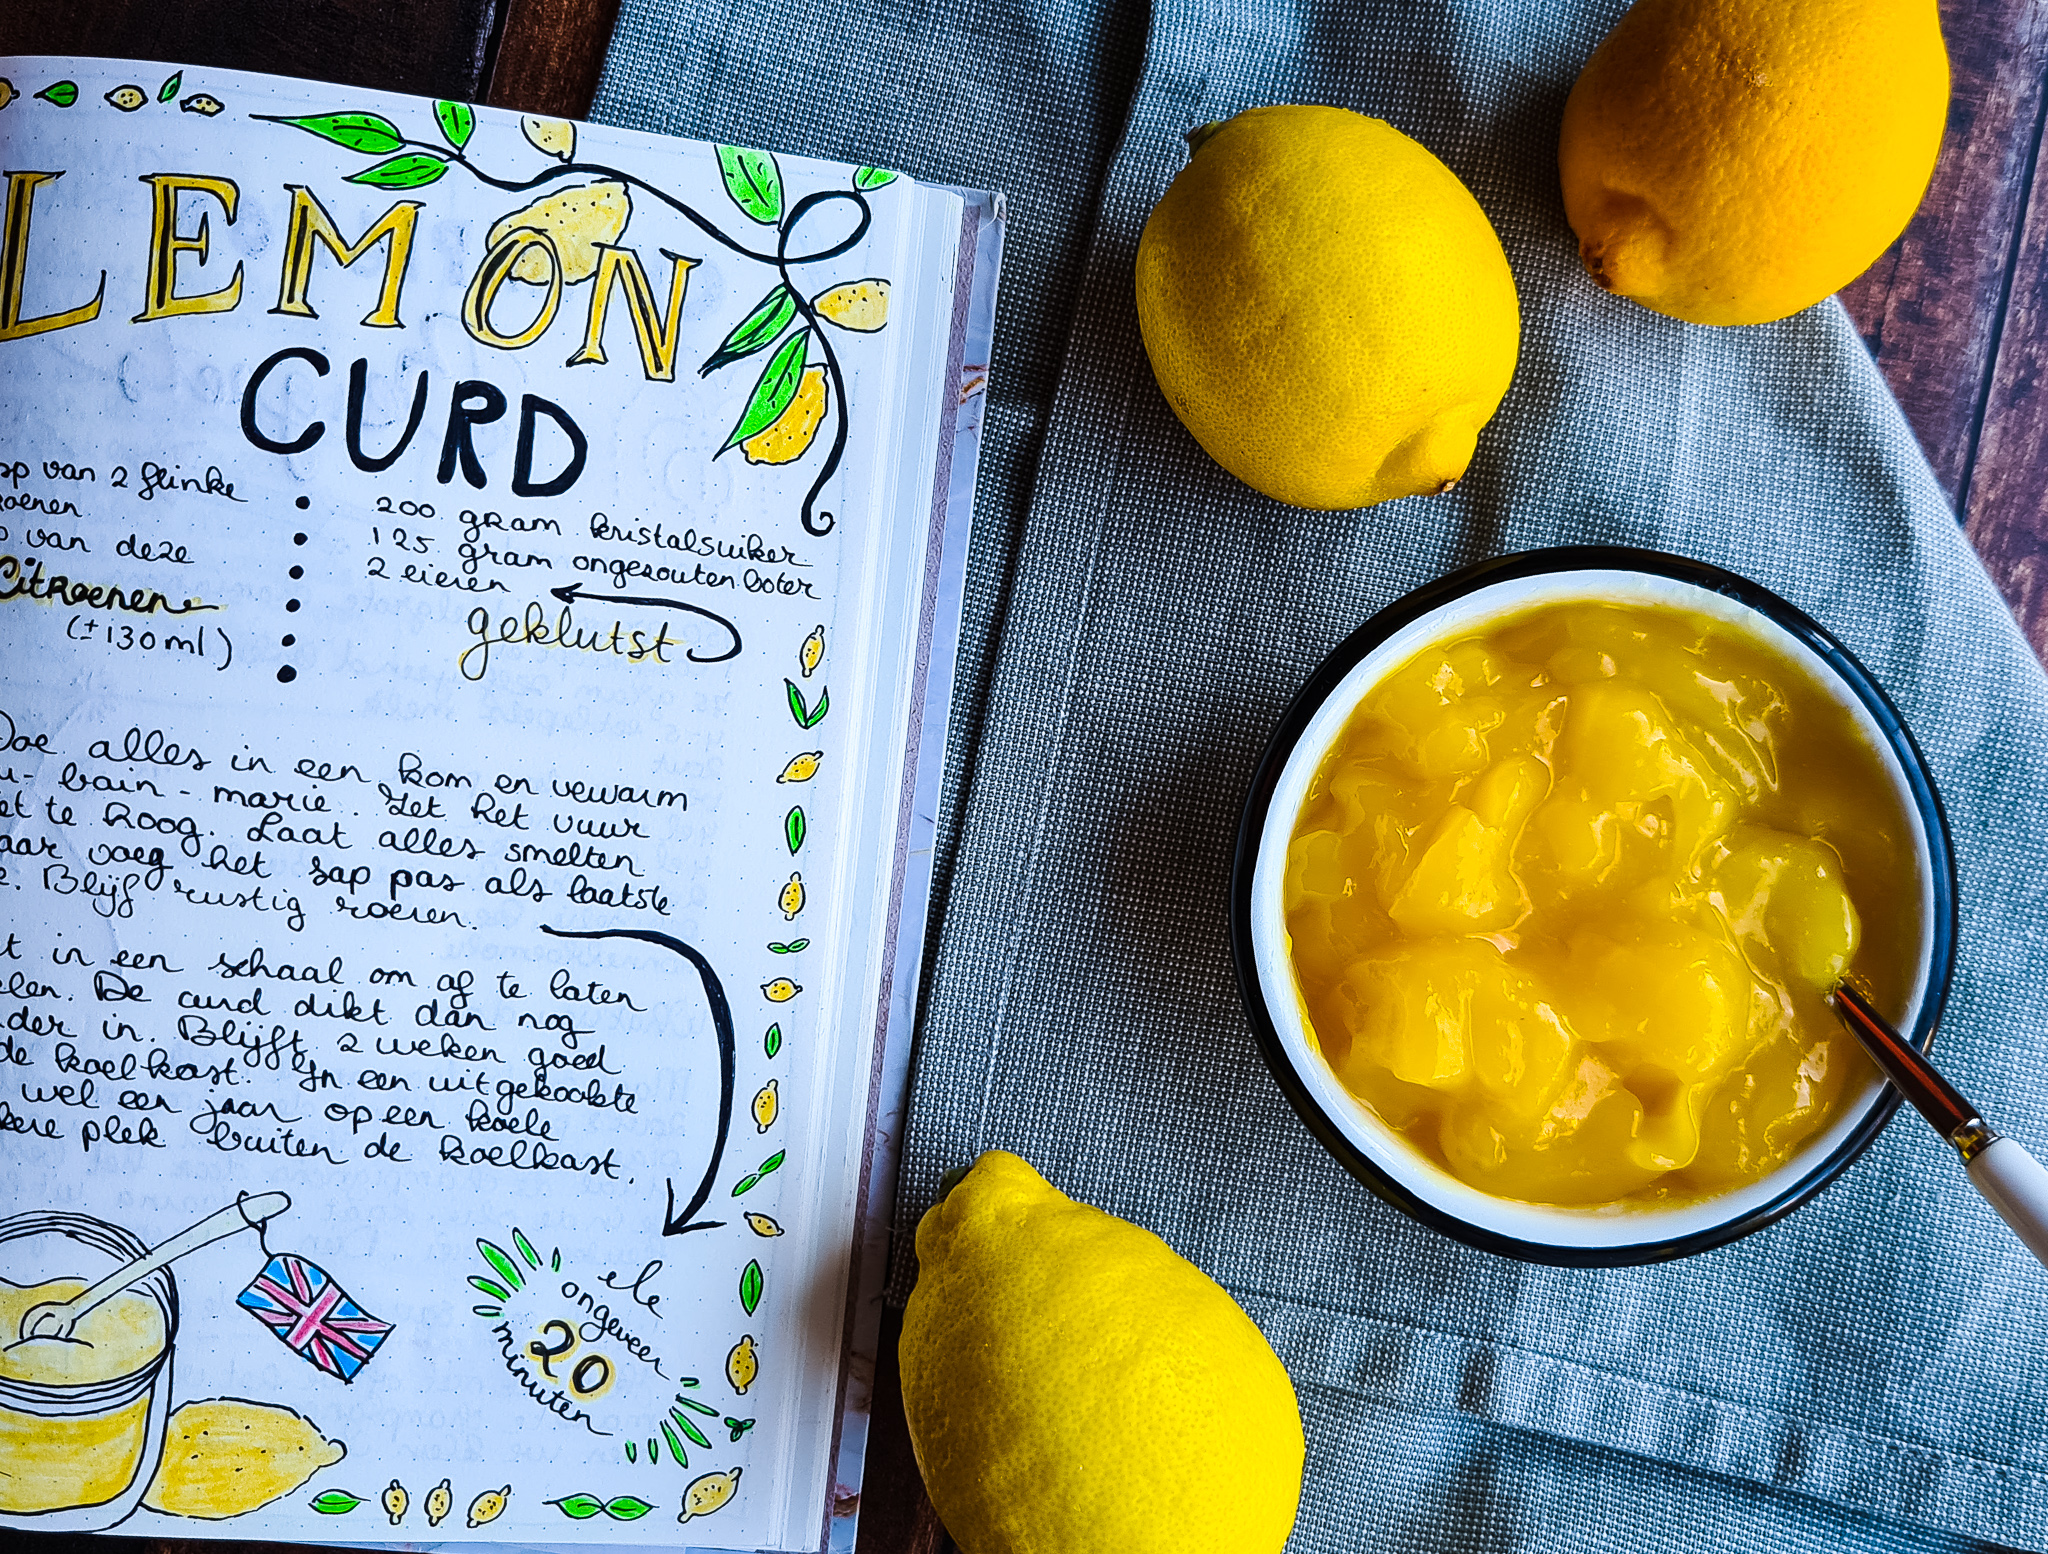 LEMON
CURD
van 2 flinke
van deze
Citroenen
(±130 ml)
200 gram kristalsuiker
125 gram ongezouten boter
2 eieren
geklutst
Doe alles in een kom en vewarm
bain-marie. Zet het vuur
te hoog. Laat alles smelten
voeg het sap pas als laatste
Blijf rustig roeren.
in een schaal om af te laten
De curd dikt dan nog
in. Blijft 2 weken goed
de koelkast. In een uitgekookte
wel een jaar op een koele
plek buiten de koelkast.
ongeveer
20
minuten